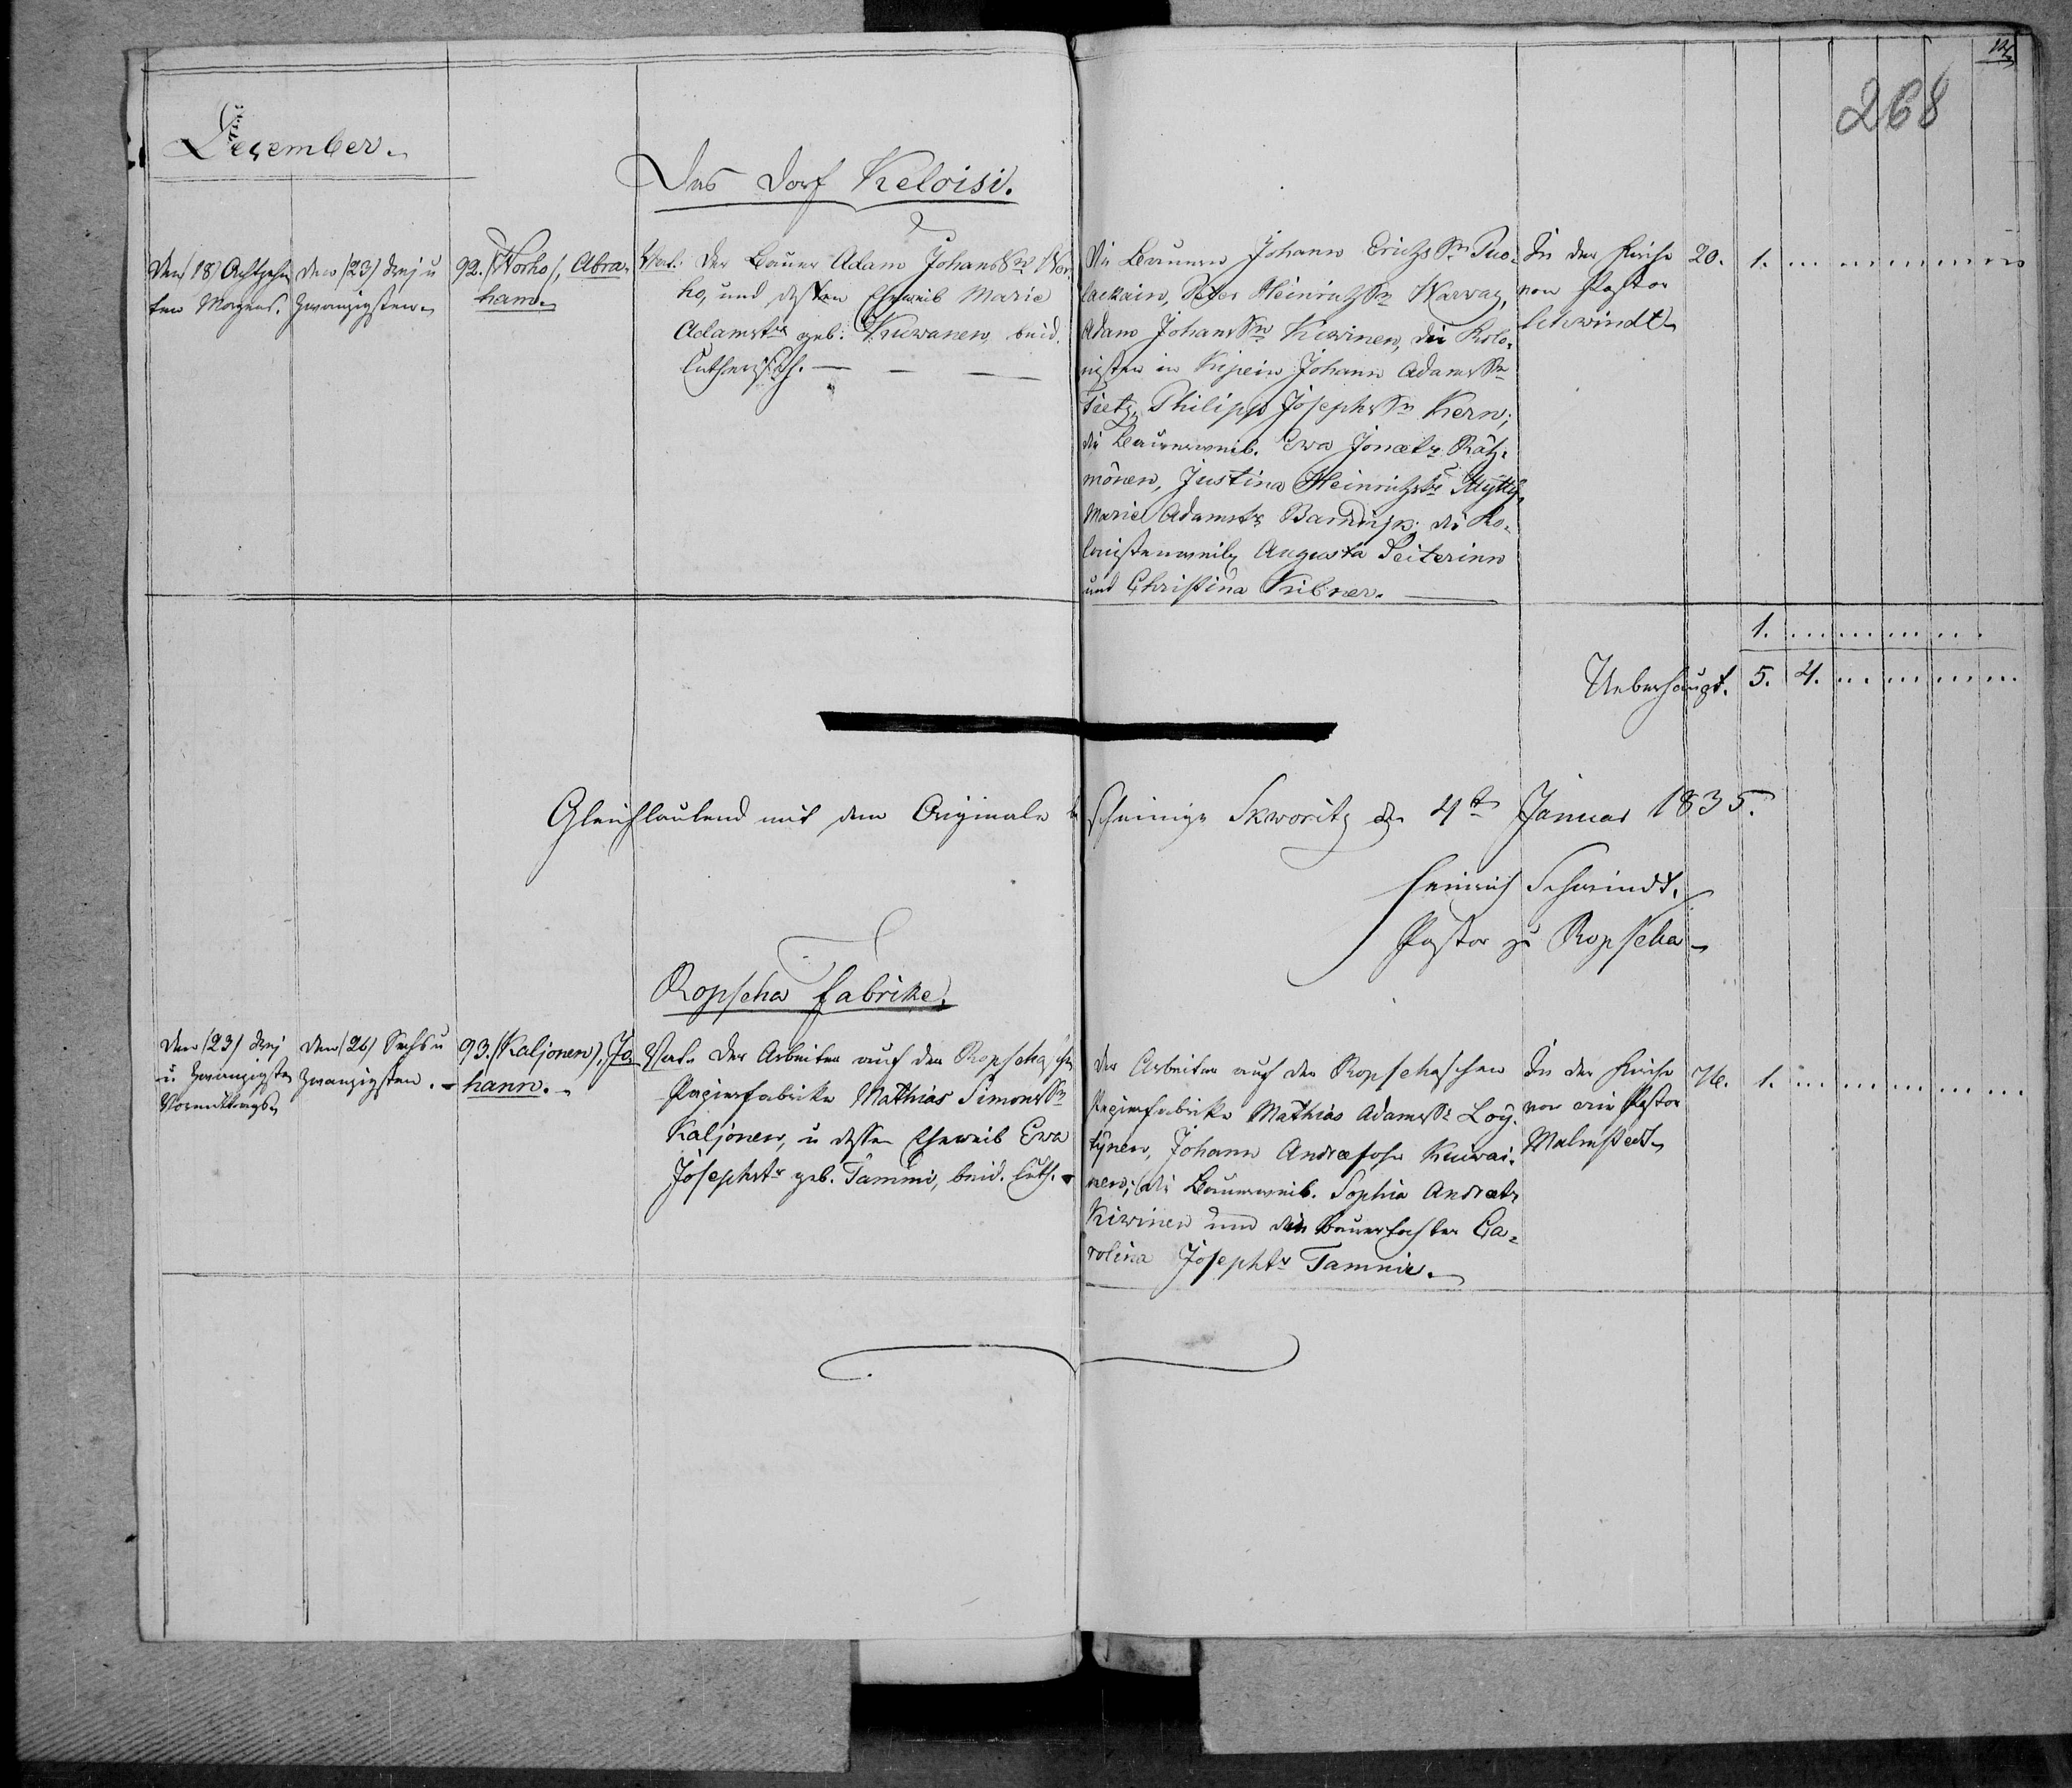 12
268
December.
Das Dorf Keloisi.
Den /18/ Achtzehn
ten Morgens.
Den /23/ drey u
Zwanzigsten
92. /Worho/, Abra-
ham
Vat: Der Bauer Adam Johans Sn Wor-
ho, und dessen Eheweib Marie
Adamstr geb: Kuwanen, beid.
Lutherisch. — — —
Die Bauern Johann Erichs Sn Puo-
lackain, Peter Heinrichs Sn Warwas,
Adam Johans Sn Kiwinen, die Kolo-
nisten in Kipein Johann Adams Sn
Tietz, Philipp Josephs Sn Kern;
die Bauerweib. Ewa Jonastr Rätz-
mönen, Justina Heinrichstr
Marie Adamstr die Ko-
lonistenweib Augusta Seiterinn
und Christina Kribner.
In der Kirche
von Pastor
Schwindt
20. 1. ... ... ... ...
1. ... ... ... ...
Ueberhaupt. 5. 4. ... ... ... ...
Gleichlautend mit dem Originale bescheinige Skworitz d. 4t Januar 1835.
Heinrich Schwindt.
Pastor zu Ropscha
Ropscha Fabrike.
Den /23/ drey
u Zwanzigsten
Vormittags
Den /26/ Sechs u
Zwanzigsten.
93. /Kaljonen/, Jo-
hann.
Vat. Der Arbeiter auf der Ropschaschen
Papierfabrike Mathias Simons Sn
Kaljonen, u dessen Eheweib Ewa
Josephstr geb. Tammi, beid. Luth.
Der Arbeiter auf der Ropschaschen
Papierfabrike Mathias Adams Sn Loy-
tynen, Johann Andreasohn Kuwai-
nen; die Bauerweib. Sophia Andreatr
Kiwinen und die Bauertochter Ca-
rolina Josephtr Tammie.
In der Kirche
von
Pastor
Malmstedt
76. 1. ... ... ... ...